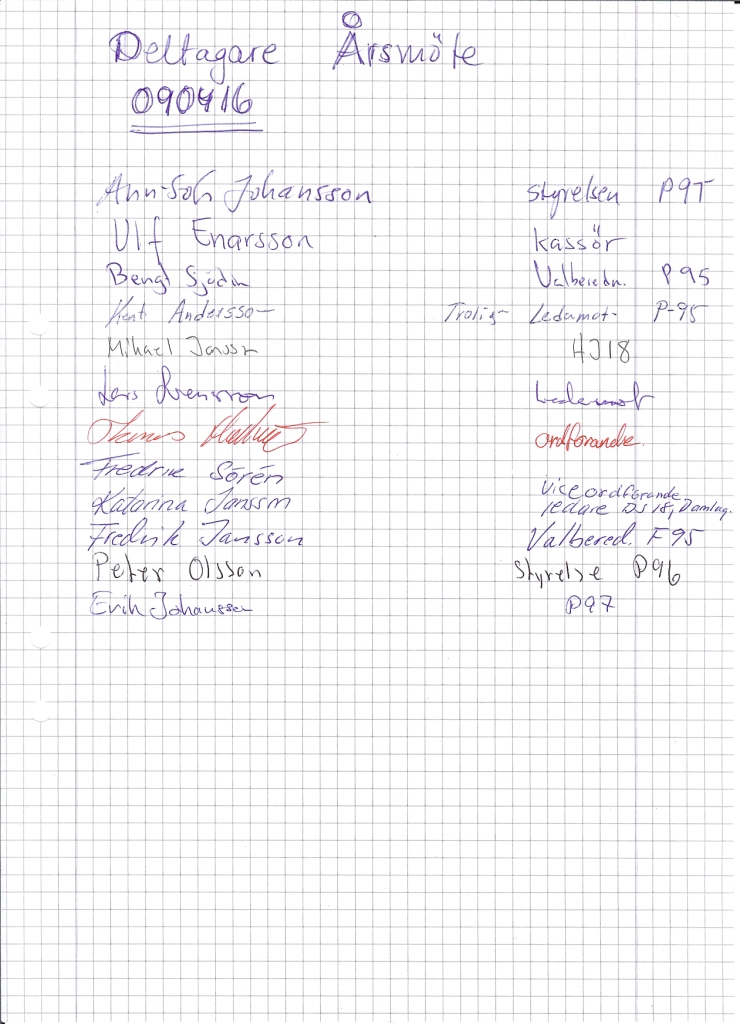 Deltagare Årsmöte
090416
Ann-Sofi Johansson styrelsen P97
Ulf Enarsson kassör
Bengt Sjödin Valberedn. P95
Kent Andersson Trolig- Ledamot- P-95
Mikael Jansson HJ18
Lars Svensson Ledamot
ordförande.
Fredrik Sörén viceordförande,
Katarina Jansson ledare DJ18, Damlag.
Fredrik Jansson Valbered. F95
Peter Olsson Styrelse P96
Erik Johansson P97